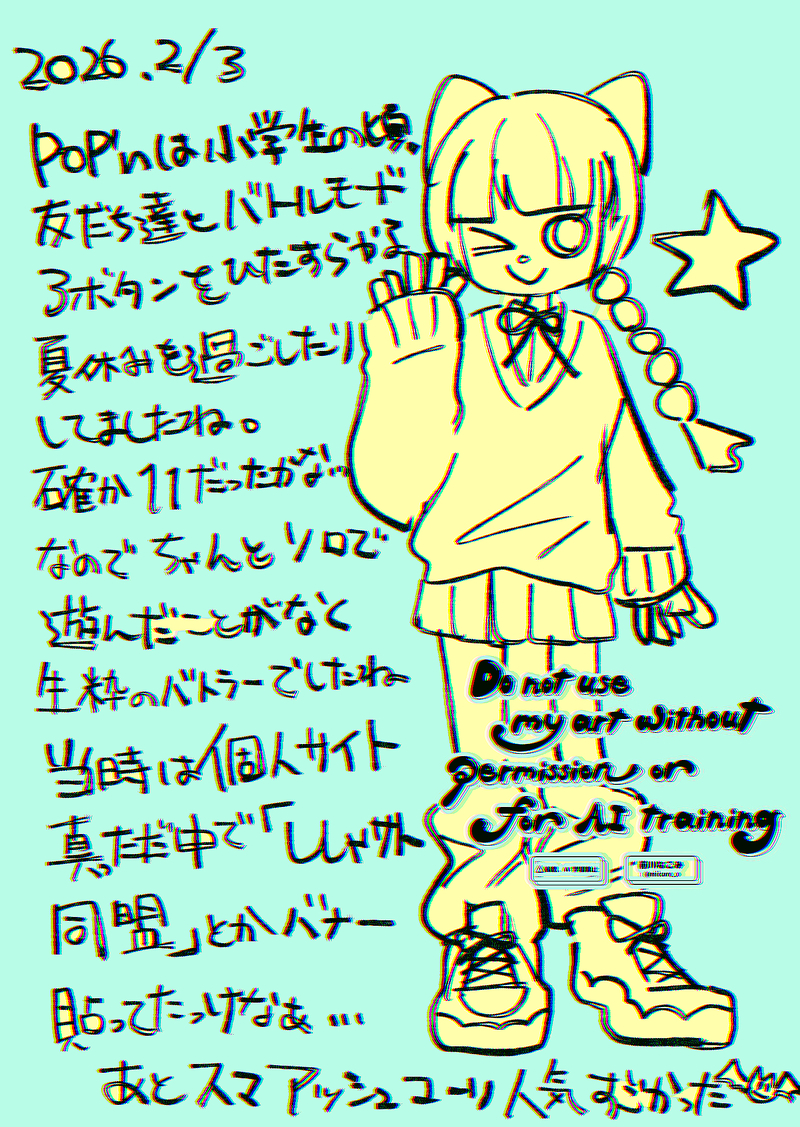 2026.2/3
POP'nは小学生の頃、
友だち達とバトルモード
3ボタンをひたすらやる
夏休みを過ごしたり
してましたね。
石確か11だったかな…
なのでちゃんとソロで
遊んだことがなく
生粋のバトラーでしたね
当時は個人サイト
真っただ中で「しゃけ
同盟」とかバナー
貼ってたっけなぁ…
あとスマ アッシュ ユーリ 人気すごかった
Do not use
my art without
permission or
for AI training